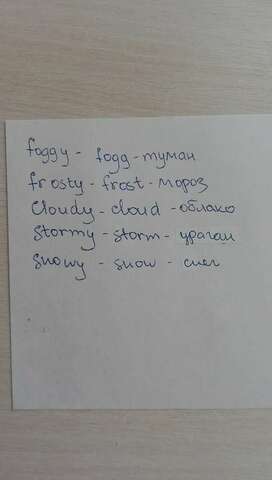 foggy - fogg - туман
frosty - frost - мороз
cloudy - cloud - облако
stormy - storm - ураган
snowy - snow - снег